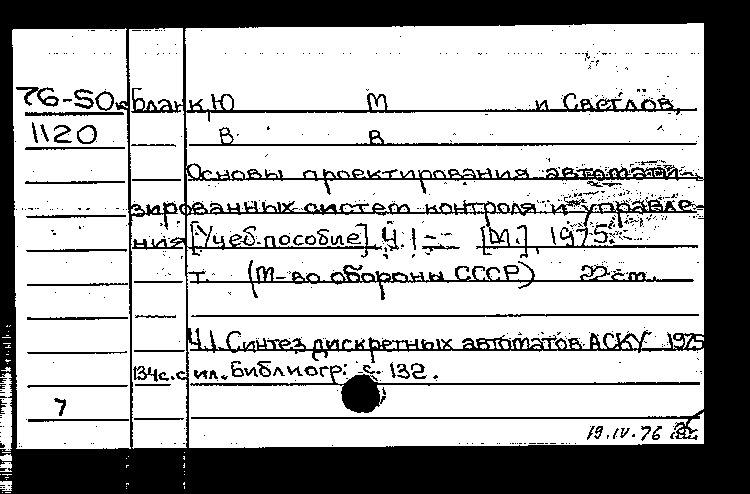 76-50к Бланк, Ю М и Светлов,
1120 В В
Основы проектирования автомати-
зированных систем контроля и управле-
ния [Учеб. пособие] Ч. 1 - [М.], 1975.
т. (М-во обороны СССР) 22 см.
Ч.1 Синтез дискретных автоматов АСКУ 1975
134с. с ил. Библиогр: с. 132.
7
19.IV.76